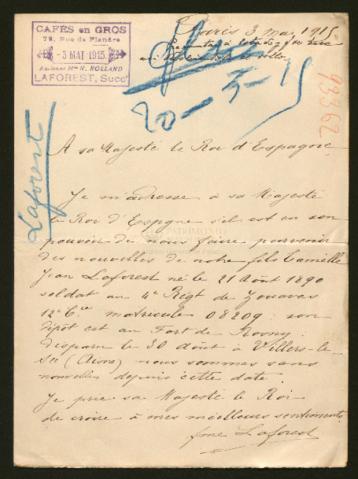 CAFÉS en GROS
79, Rue de Flandre
- 3 MAI 1915
Ancienne Mon N. ROLLAND
LAFOREST, Succr
Paris 3 mai 1915
20-5-15
93362
Laforest
A sa Majesté le Roi d'Espagne
Je m'adresse à sa Majesté
le Roi d'Espgne s'il est en son
pouvoir de nous faire parvenir
des nouvelles de notre fils Camille
Jean Laforest né le 21 Août 1890
soldat au 4e Régt de Zouaves
12e Cie matricule 08209 son
dépôt est au Fort de Rosny
Disparu le 30 août à Villers-le-
Sec (Aisne) nous sommes sans
nouvelles depuis cette date.
Je prie sa Majesté le Roi
de croire à mes meilleurs sentiments
Laforest